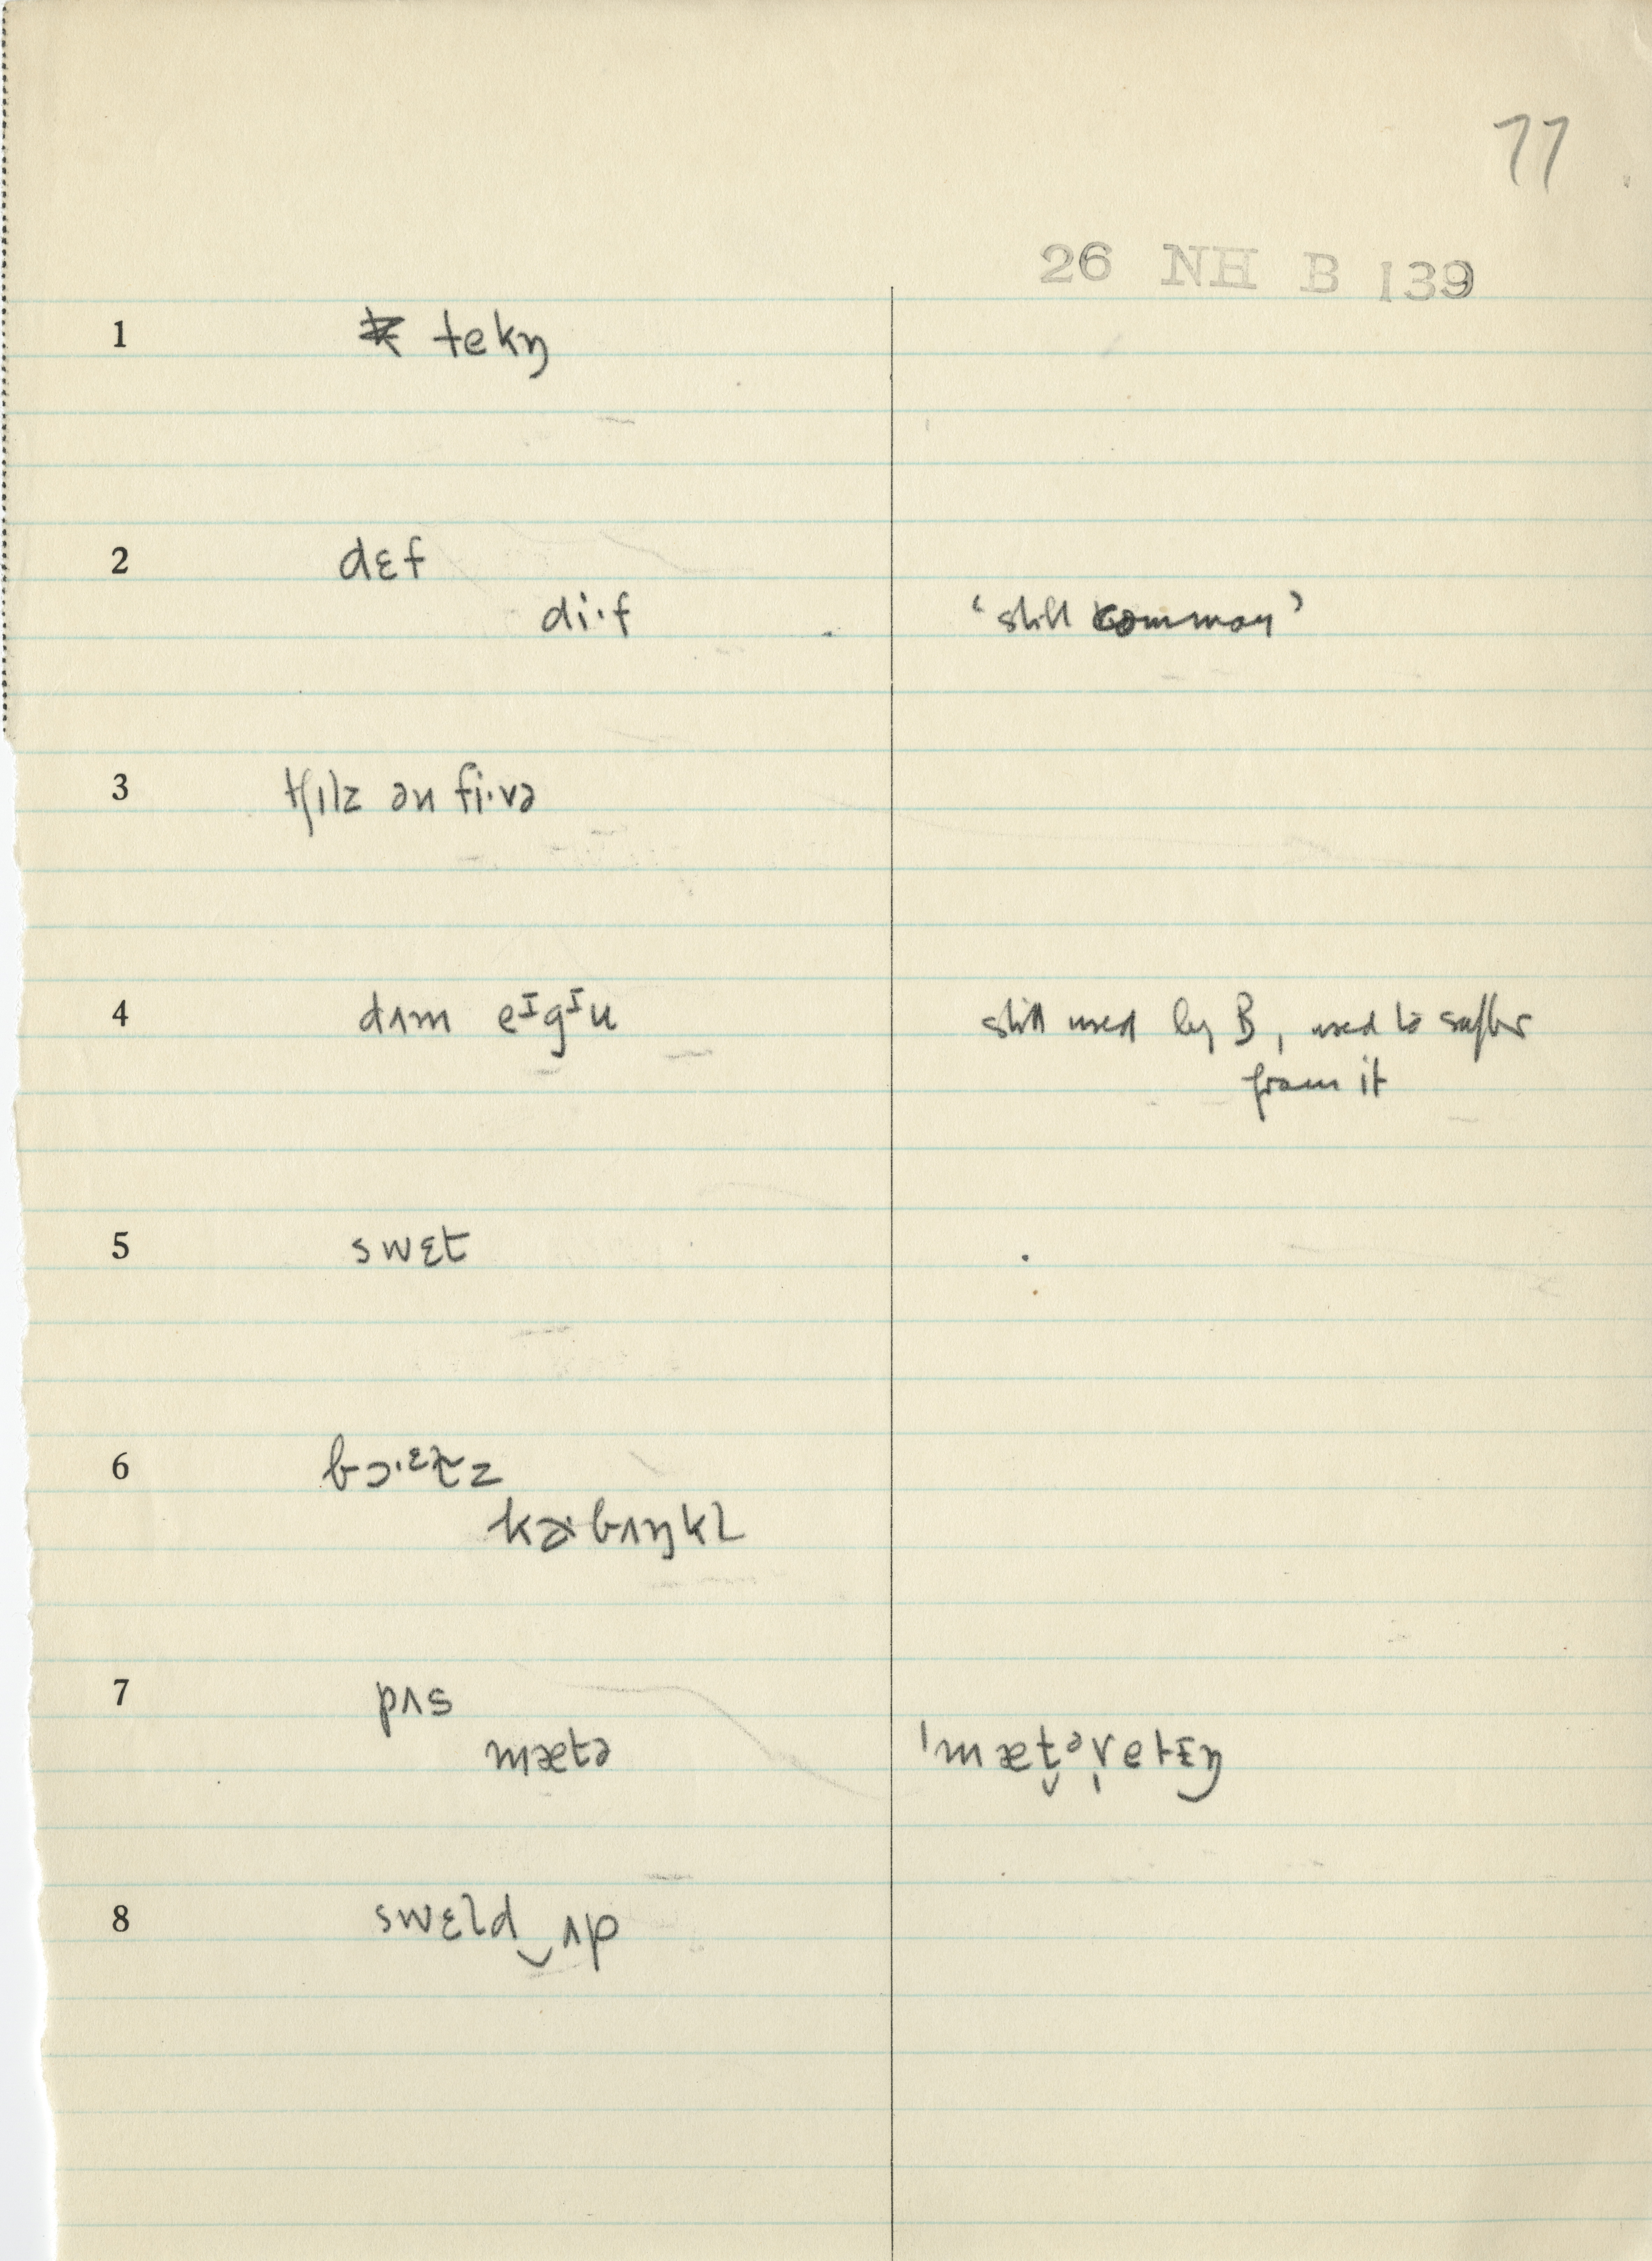 77
26 NH B 139
1 tekŋ
2 dɛf
di·f ‘still common’
3 tʃɪlz ən fi·və
4 dʌm eᶦgᶦu still used by B, used to suffer
from it
5 swɛt
6 bɔ·ᵋɫz
kɚbʌŋkl
7 pʌs
mætə ˈmæt̬ᵊr̩etɪŋ
8 swɛld‿ʌp